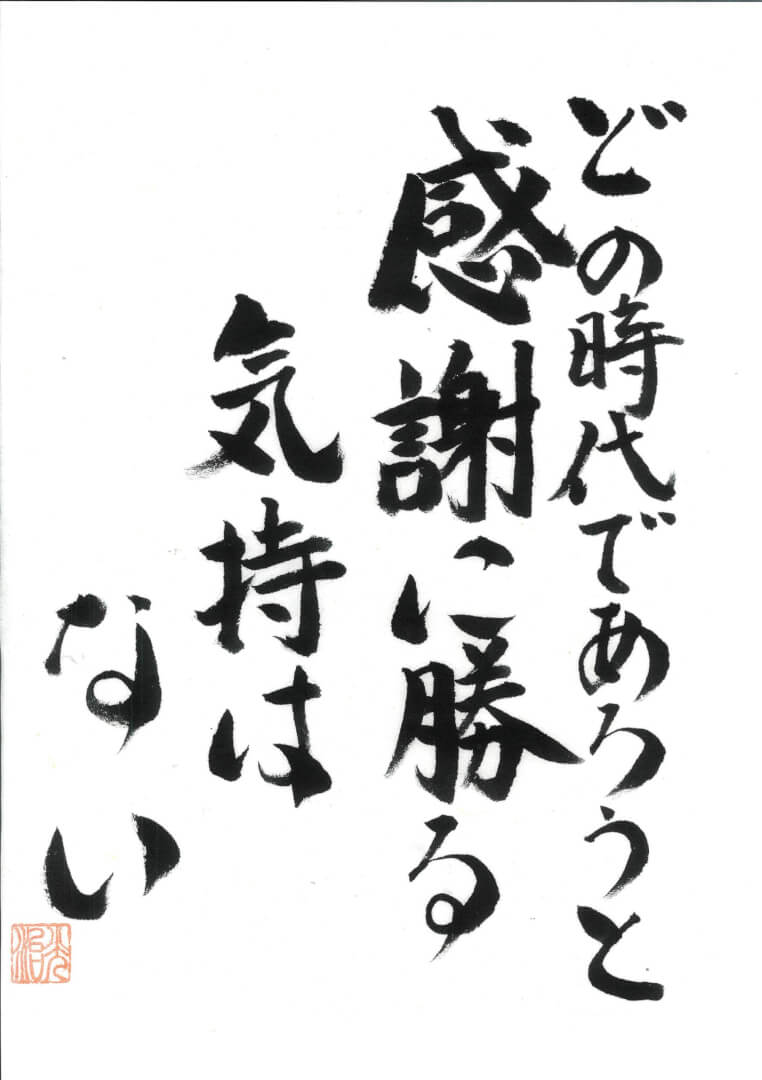 どの時代であろうと
感謝に勝る
気持は
ない